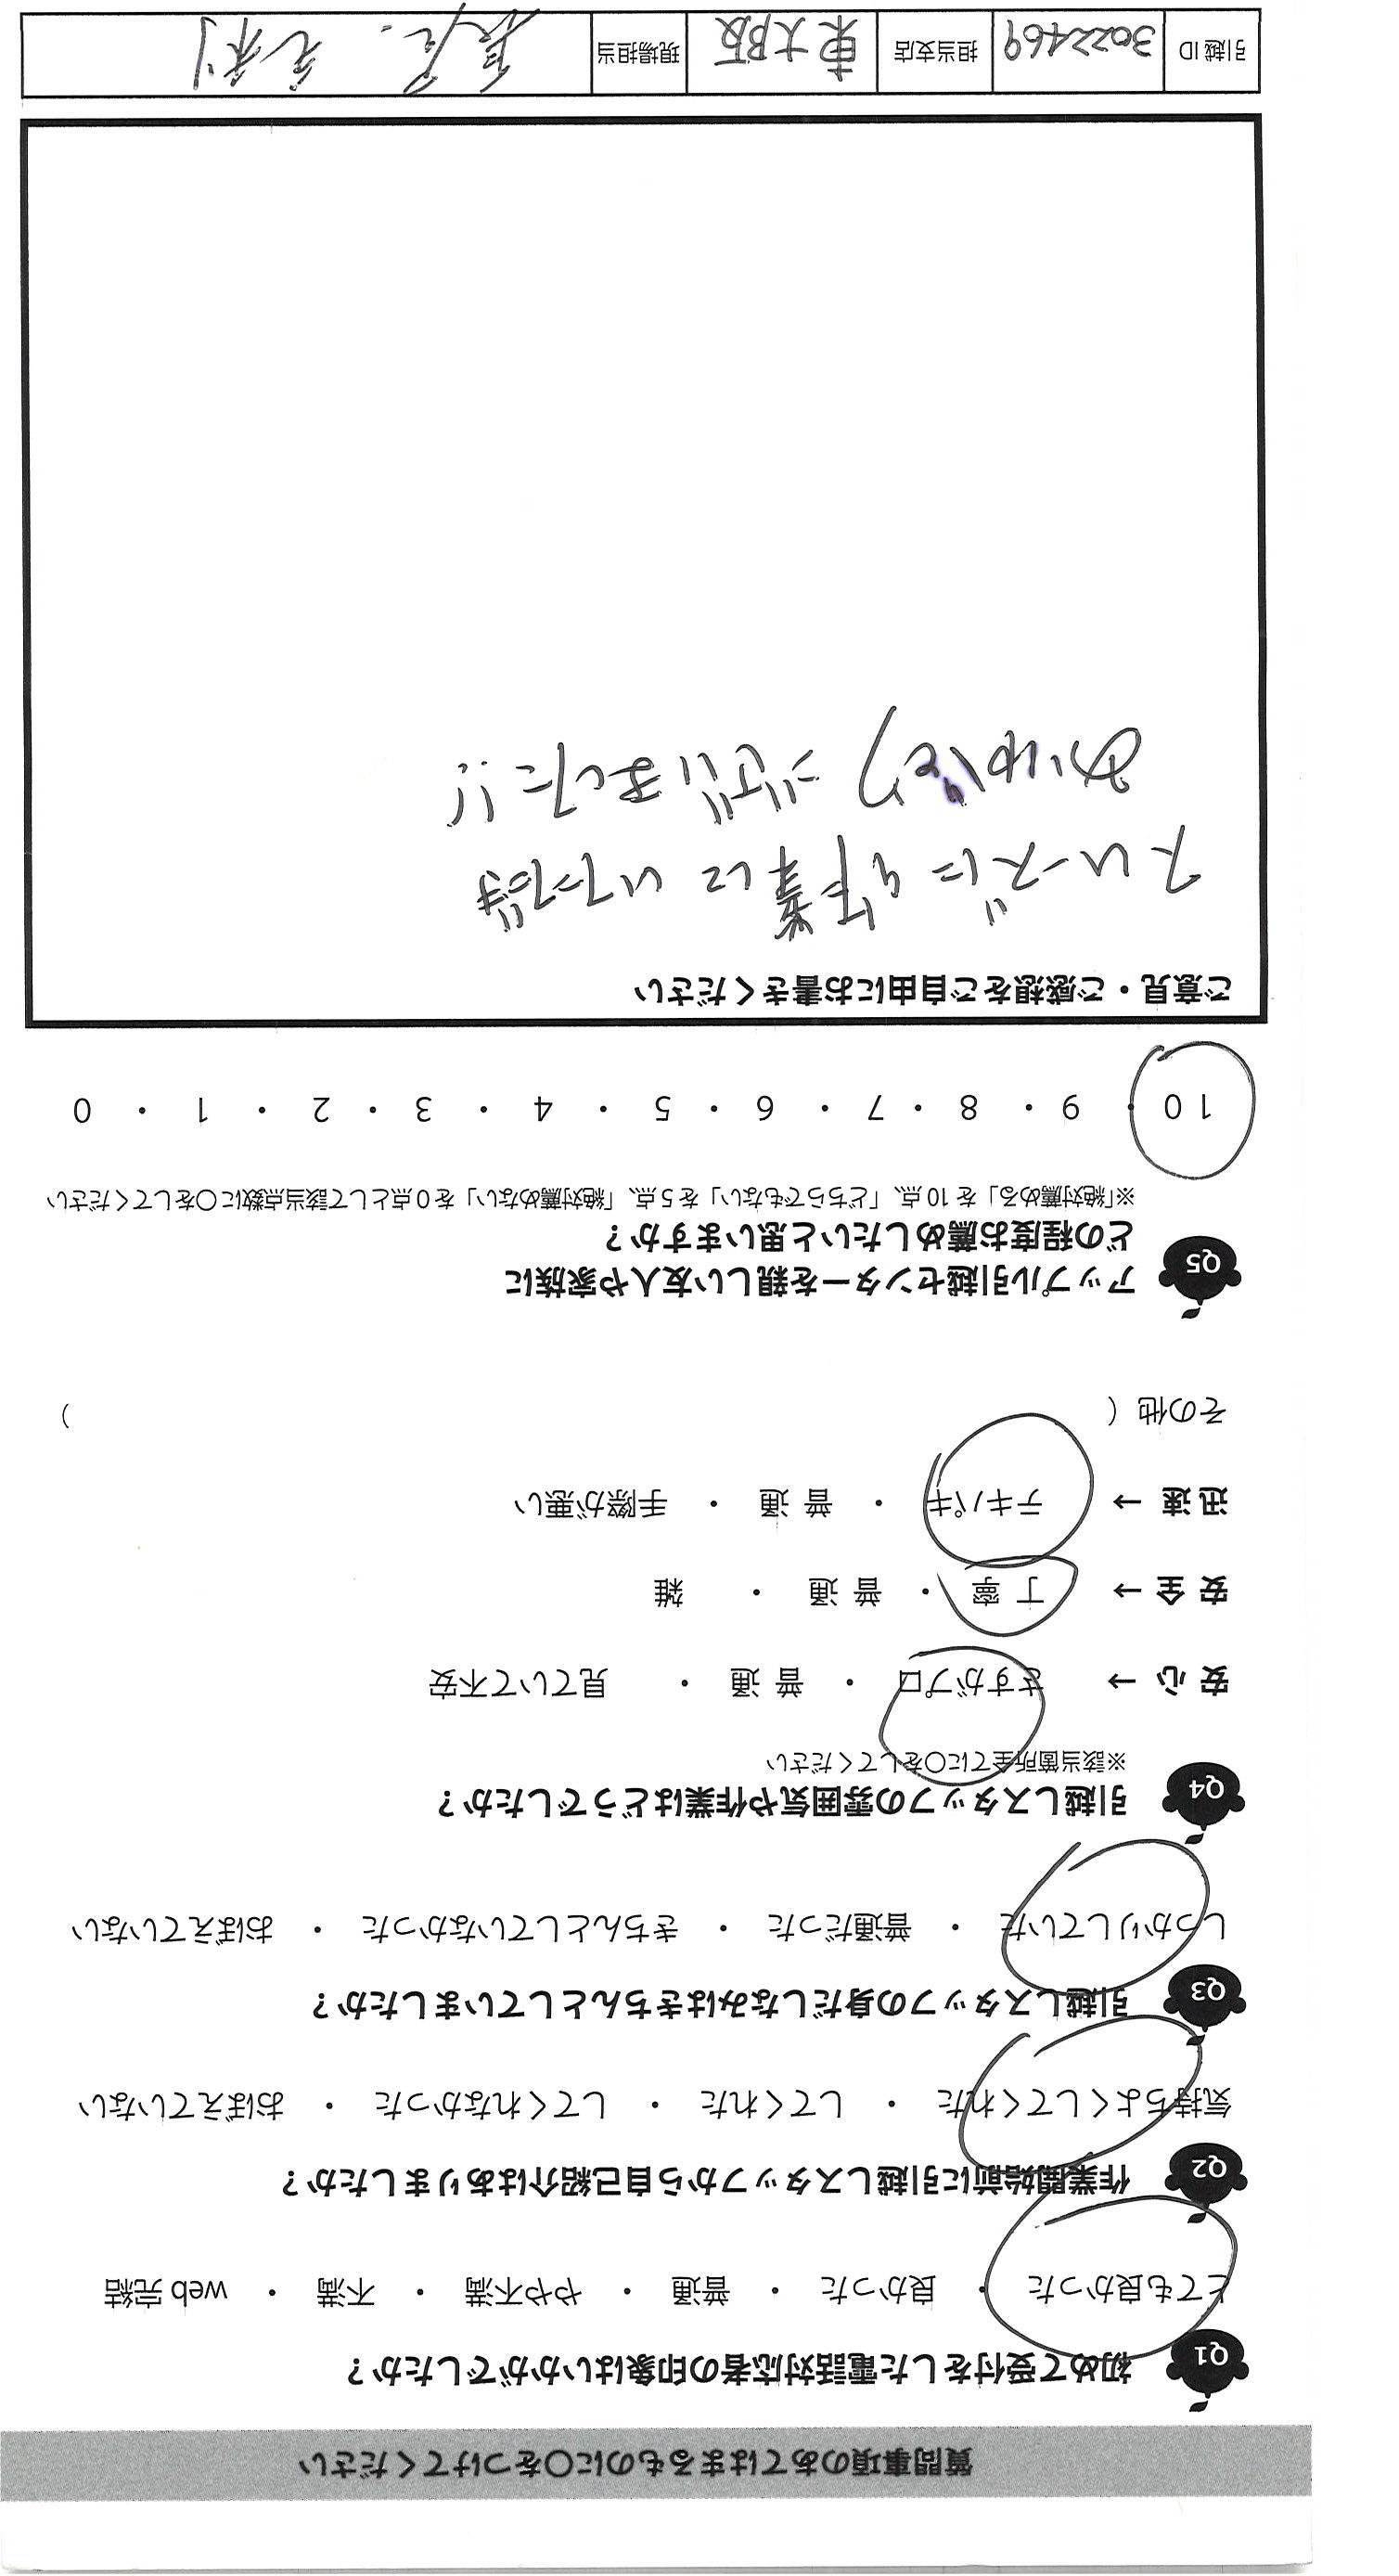 質問事項のあてはまるものに○をつけてください
Q1 初めて受付をした電話対応者の印象はいかがでしたか？
とても良かった ・ 良かった ・ 普通 ・ やや不満 ・ 不満 ・ web 完結
Q2 作業開始前に引越しスタッフから自己紹介はありましたか？
気持ちよくしてくれた ・ してくれた ・ してくれなかった ・ おぼえていない
Q3 引越しスタッフの身だしなみはきちんとしていましたか？
しっかりしていた ・ 普通だった ・ きちんとしていなかった ・ おぼえていない
Q4 引越しスタッフの雰囲気や作業はどうでしたか？
※該当箇所全てに○をしてください
安心 → さすがプロ ・ 普通 ・ 見ていて不安
安全 → 丁寧 ・ 普通 ・ 雑
迅速 → テキパキ ・ 普通 ・ 手際が悪い
その他（ ）
Q5 アップル引越センターを親しい友人や家族に
どの程度お薦めしたいと思いますか？
※「絶対薦める」を 10 点、「どちらでもない」を 5 点、「絶対薦めない」を 0 点として該当点数に○をしてください
10 ・ 9 ・ 8 ・ 7 ・ 6 ・ 5 ・ 4 ・ 3 ・ 2 ・ 1 ・ 0
ご意見・ご感想をご自由にお書きください
スムーズに作業していただき
ありがとうございました!!
引越ID 3022469 担当支店 東大阪 現場担当